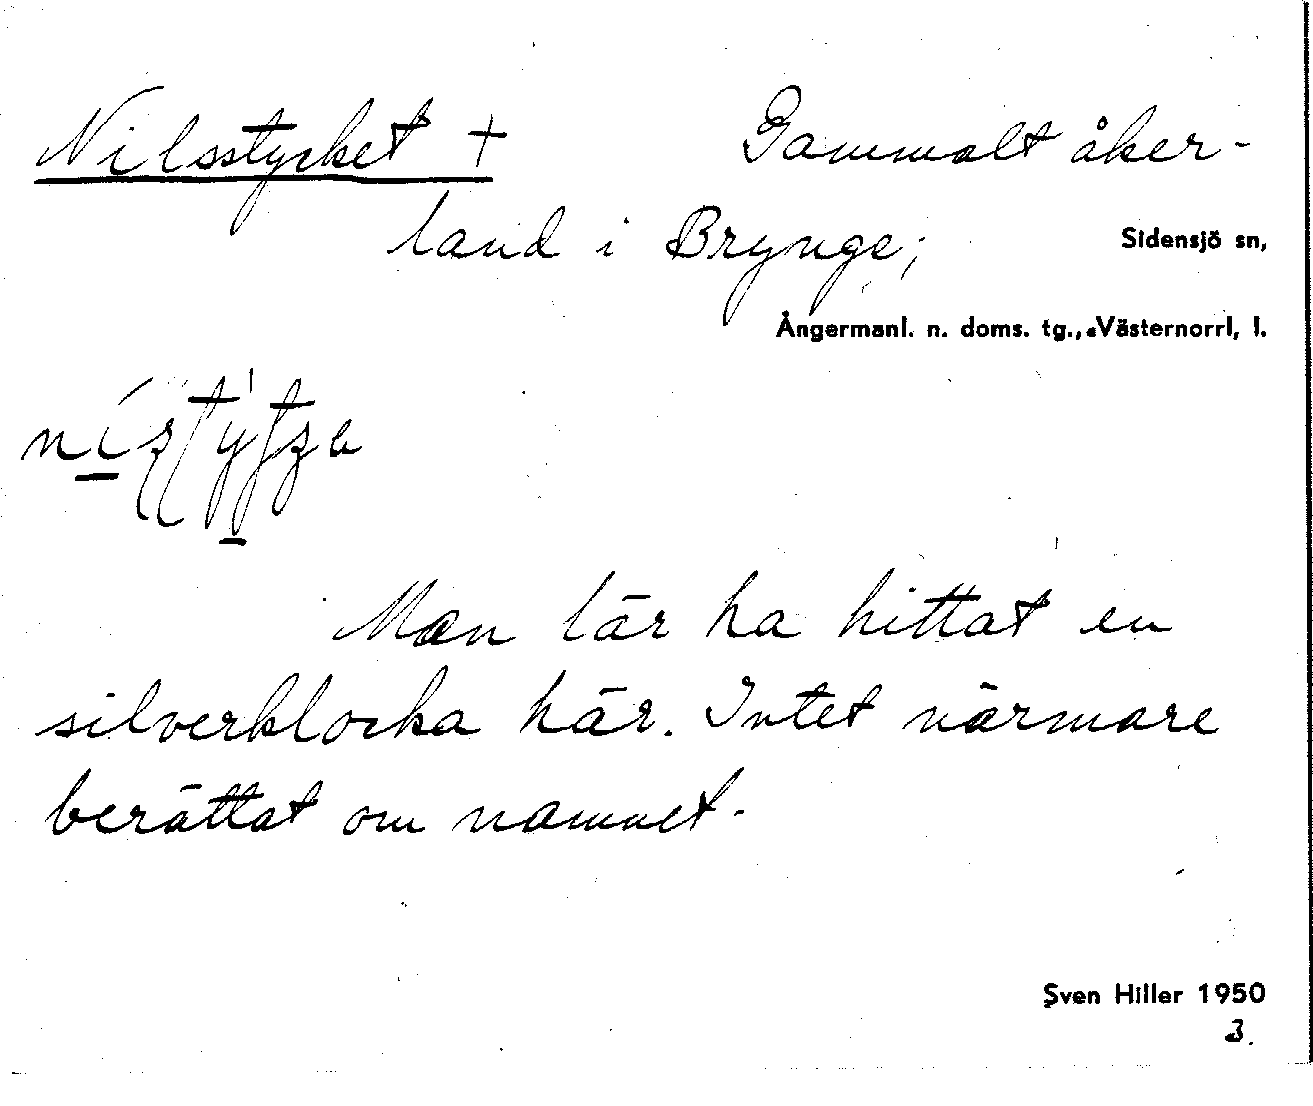 Nilsstycket + Gammalt åker-
land i Brynge;
Sidensjö sn,
Ångermanl. n. doms. tg., Västernorrl, l.
Man lär ha hittat en
silverklocka här. Intet närmare
berättat om namnet.
Sven Hiller 1950
3.